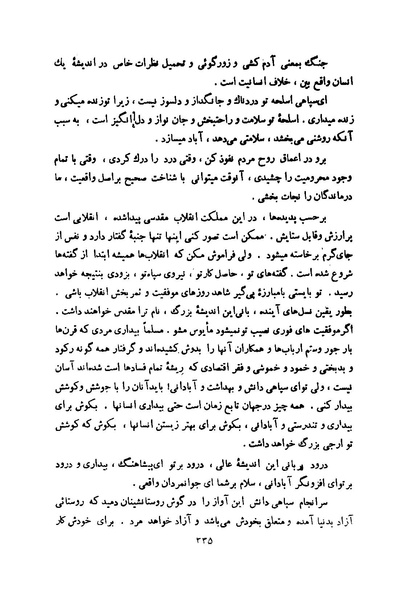 جنگ بمعنی آدم کشی و زورگوئی و تحمیل نظرات خاص در اندیشهٔ یك
انسان واقع بین ، خلاف انسانیت است .
ای‌سپاهی اسلحه تو دردناك و جانگداز و دلسوز نیست ، زیرا توزنده میکنی و
زنده میداری . اسلحهٔ توسلامت و راحتبخش و جان نواز و دل‌انگیز است ، به سبب
آنکه روشنی می‌بخشد ، سلامتی می‌دهد ، آباد میسازد .
برو در اعماق روح مردم نفوذ کن ، وقتی درد را درك کردی ، وقتی با تمام
وجود محرومیت را چشیدی ، آنوقت میتوانی با شناخت صحیح براصل واقعیت ، ما
درماندگان را نجات بخشی .
برحسب پدیده‌ها ، در این مملکت انقلاب مقدسی پیداشده ، انقلابی است
پرارزش وقابل ستایش . ممکن است تصور کنی اینها تنها جنبهٔ گفتار دارد و نفس از
جای‌گرم برخاسته میشود . ولی فراموش مکن که انقلاب‌ها همیشه ابتدا از گفته‌ها
شروع شده است . گفته‌های تو ، حاصل کارتو ، نیروی سپاه‌تو ، بزودی بنتیجه خواهد
رسید . تو بایستی بامبارزهٔ پی‌گیر شاهد روزهای موفقیت و ثمربخش انقلاب باشی .
بطور یقین نسل‌های آینده ، بانی‌این اندیشهٔ بزرگ ، نام ترا مقدس خواهند داشت .
اگرموفقیت های فوری نصیب تونمیشود مأیوس مشو . مسلماً بیداری مردی که قرن‌ها
بار جور وستم ارباب‌ها و همکاران آنها را بدوش کشیده‌اند و گرفتار همه گونه رکود
و بدبختی و خمود و خموشی و فقر اقتصادی که ریشهٔ تمام فسادها است شده‌اند آسان
نیست ، ولی توای سپاهی دانش و بهداشت و آبادانی! بایدآنان را با جوشش وکوشش
بیدار کنی . همه چیز درجهان تابع زمان است حتی بیداری انسانها . بکوش برای
بیداری و تندرستی و آبادانی ، بکوش برای بهتر زیستن انسانها ، بکوش که کوشش
تو ارجی بزرگ خواهد داشت .
درود بربانی این اندیشهٔ عالی ، درود بر تو ای‌پیشاهنگ ، بیداری و درود
بر توای افزونگر آبادانی ، سلام برشما ای جوانمردان واقعی .
سرانجام سپاهی دانش این آواز را در گوش روستانشینان دمید که روستائی
آزاد بدنیا آمده و متعلق بخودش می‌باشد و آزاد خواهد مرد . برای خودش کار
۲۳۵